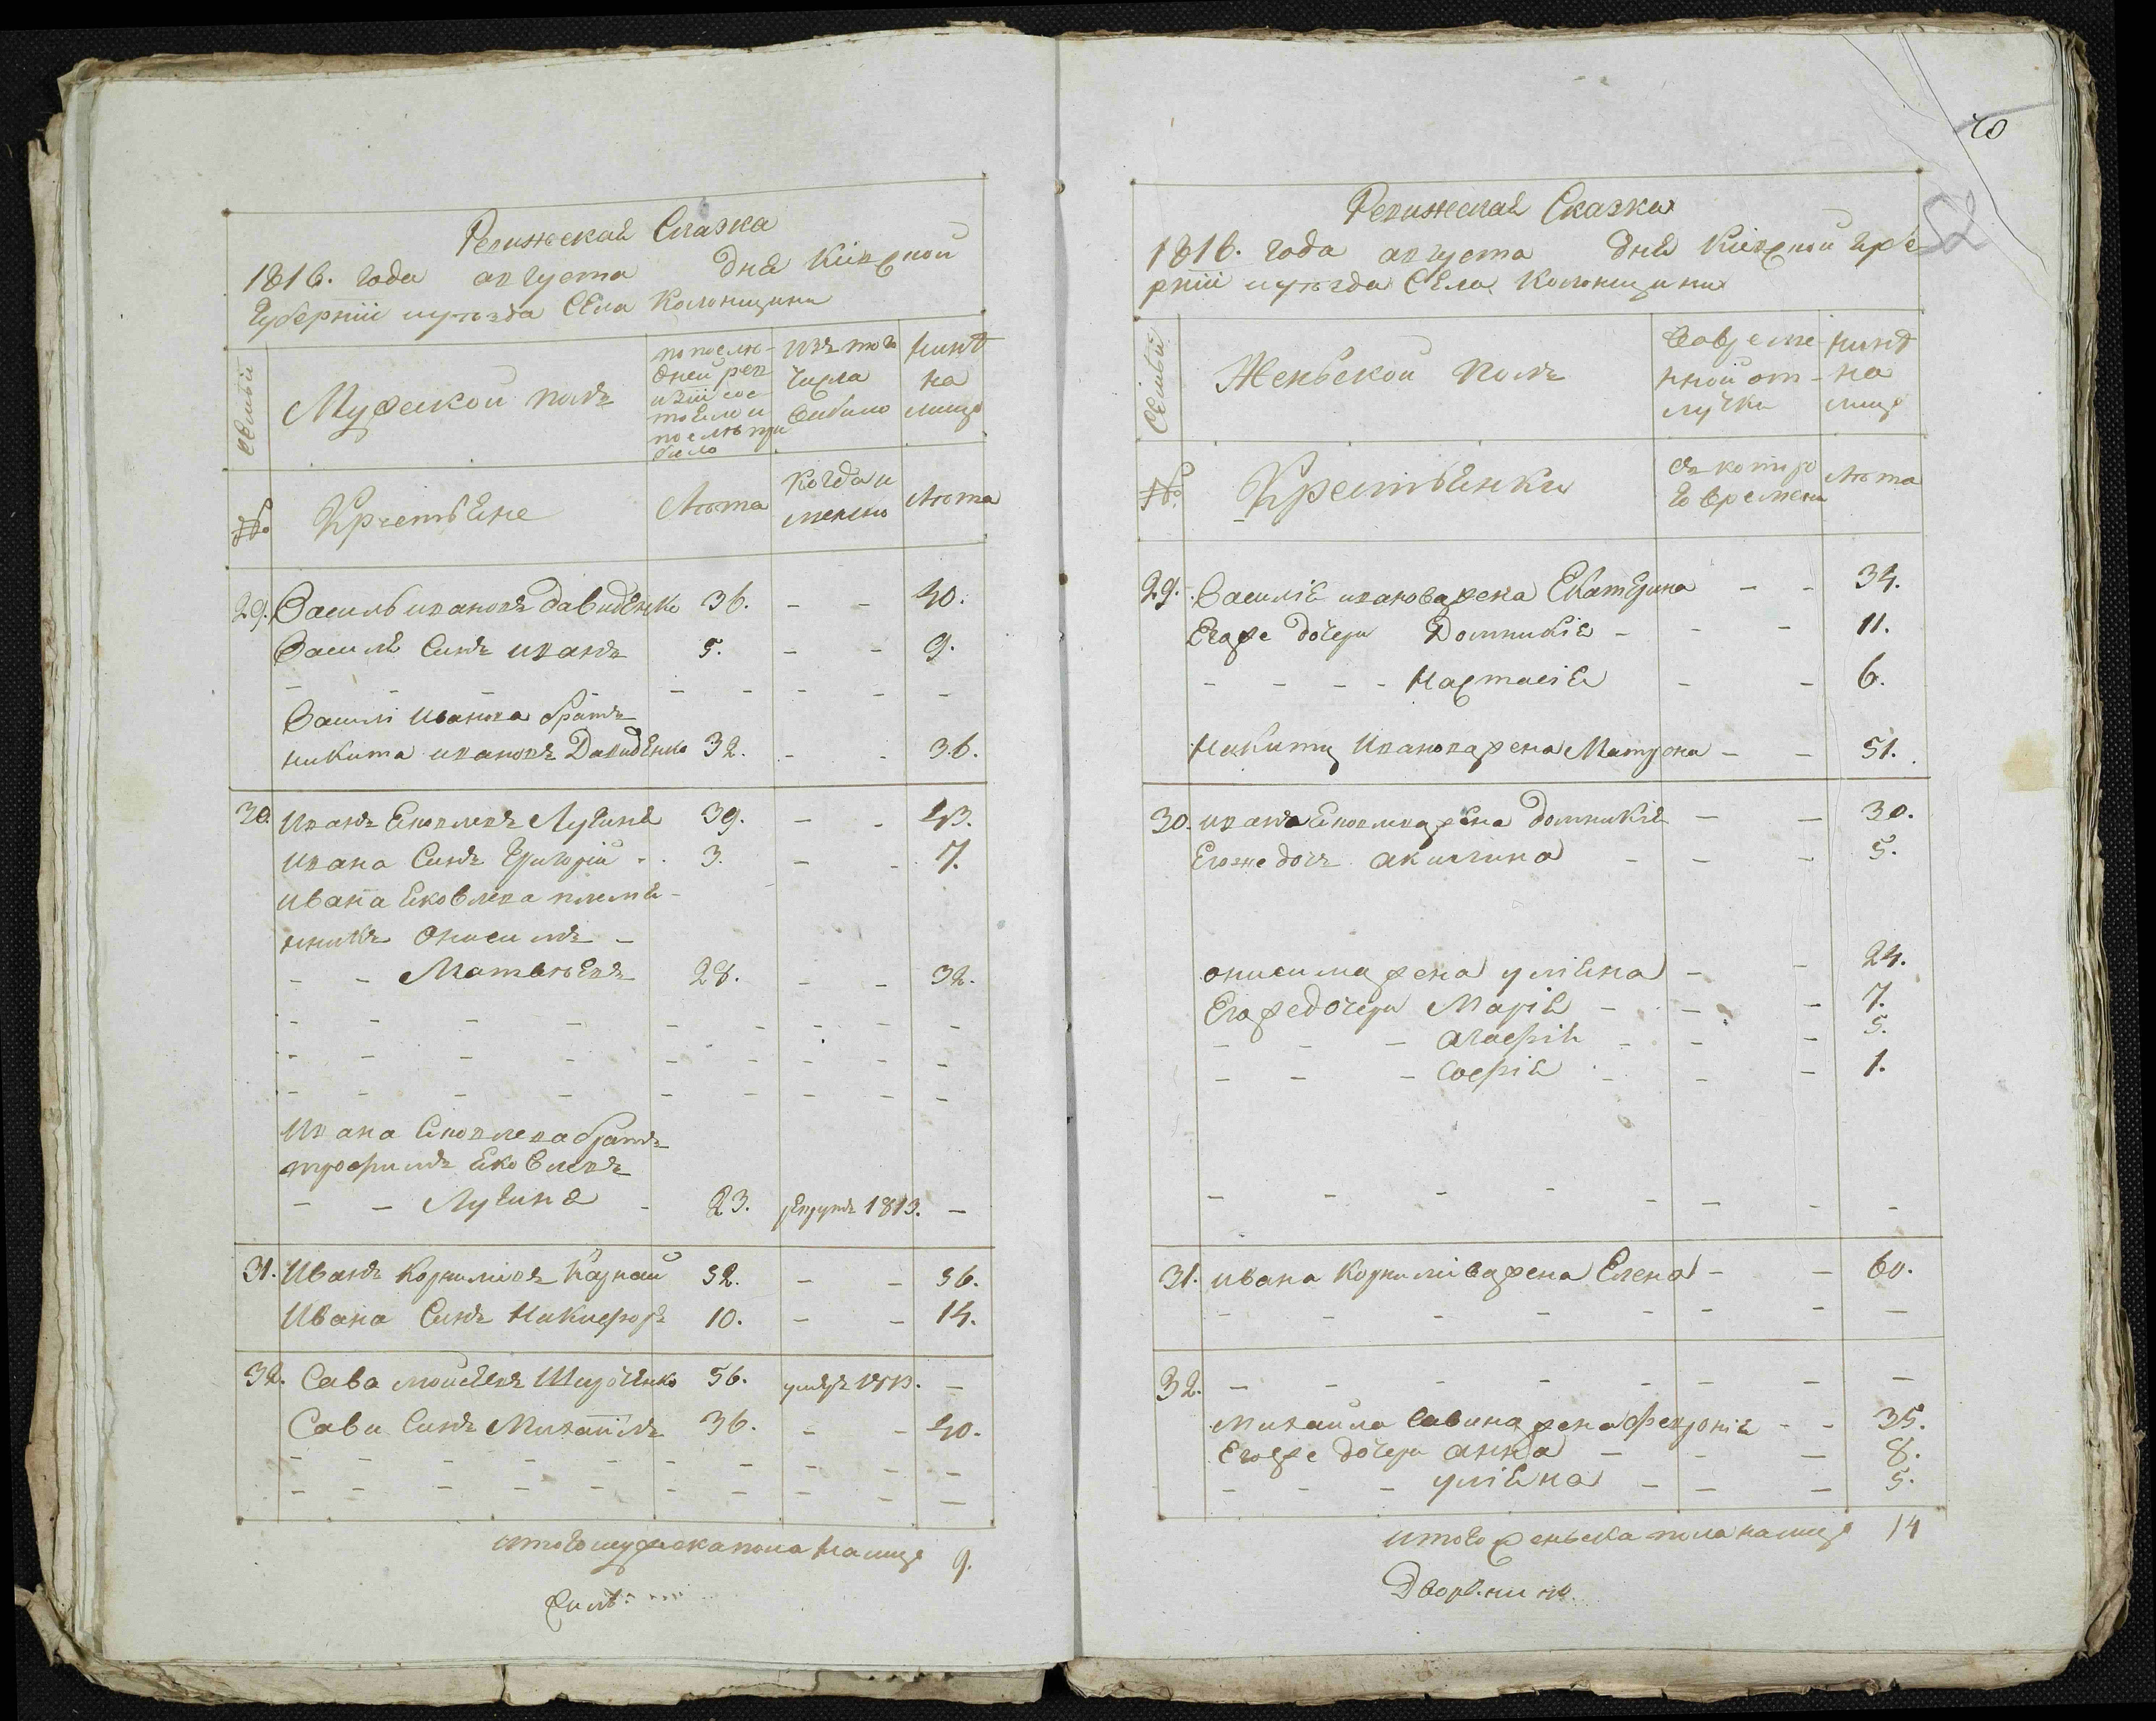 Ревижская Сказка
1816. года августа дня Кіевской
Губерніи и уѣзда Села Колонщини
Семьи
Мужской полъ
по послѣ-
дней рев
изіи сос-
тояло и
послѣ при
было
изъ того
числа
выбило
нинѣ
на
лицо
№
Крестьяне
Лѣта
когда и
менно
Лѣта
29. Василь ивановъ давиденко 36. - - 40.
Василя Синъ иванъ 5. - - 9.
- - - - - - - -
Василя Иванова братъ
никита ивановъ Давиденко 32. - - 36.
30. иванъ Яковлевъ 39. - - 43.
ивана Синъ Григорій 3. - - 7.
ивана Яковлева племя-
нникъ Онисимъ -
- - Матвѣевъ 28. - - 32.
- - - - - - - - -
- - - - - - - - -
- - - - - - - - -
Ивана Яковлева братъ
трофимъ Яковлевъ
- - - 23. рекрутъ 1813. -
31. Иванъ Корниліевъ 52. - - 56.
Ивана Синъ Никифоръ 10. - - 14.
32. Сава моисеевъ 56. умеръ 1813. -
Сави Синъ Михаіилъ 36. - - 40.
- - - - - - - - - -
- - - - - - - - - -
итого мужеска пола налицо 9.
52
Ревижская Сказка
1816. года августа дня Кіевской Губе
рніи и уѣзда Села Колонщини
Семьи
Женьской полъ
Вовреме
нной от-
лучки
нинѣ
на
лицо
№
Крестьянки
съ которо
го времени
Лѣта
29. Василія иванова жена Екатерина - - 34.
Егоже дочери Домникія - - - 11.
- - - - Настасія - - 6.
Никиты Иванова жена Матрона - - 51.
30. ивана Яковлева жена домникія - - 30.
Егоже дочь акилина - - - 5.
онисима жена уліяна - - 24.
Егоже дочери Марія - - - 7.
- - - агафія - - - 5.
- - - Софія - - - 1.
- - - - - - - -
31. ивана Корниліева жена Елена - - 60.
- - - - - - - -
32. - - - - - - - -
михаила Савина жена Февронія - - 35.
Егоже дочери анна - - - 8.
- - - уліяна - - - 5.
итого женьска пола налицо 14